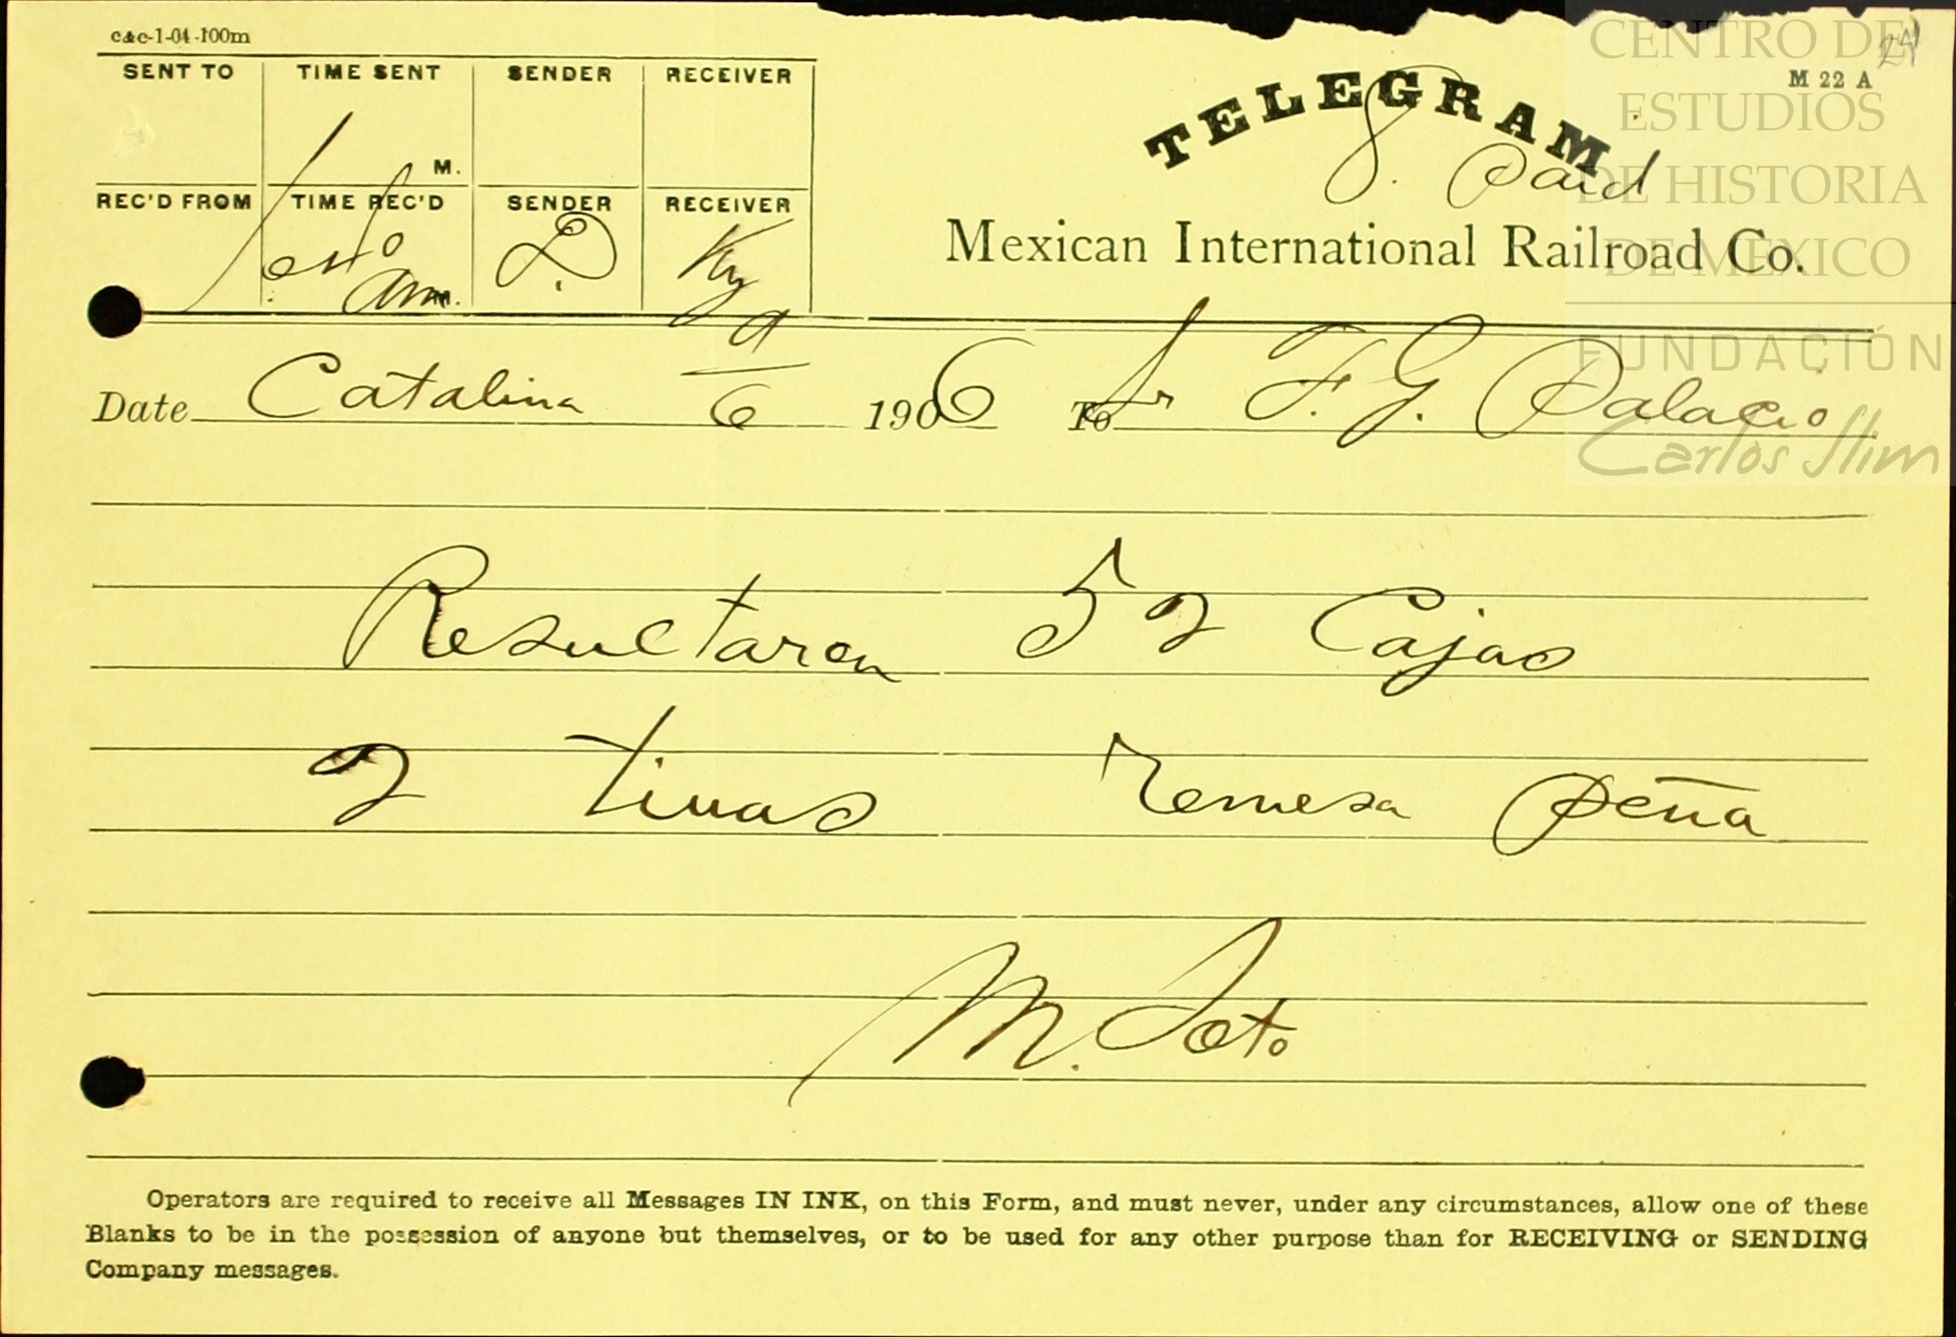 c&c-1-04-100m
24
M 22 A
SENT TO TIME SENT SENDER RECEIVER
M.
REC'D FROM TIME REC'D SENDER RECEIVER
Am. D. Ky
TELEGRAM
8. Paid
Mexican International Railroad Co.
Date Catalina 9/6 1906 To Sr F. G. Palacio
Resultaron 52 Cajas
2 tinas remesa Peña
M. Soto
Operators are required to receive all Messages IN INK, on this Form, and must never, under any circumstances, allow one of these
Blanks to be in the possession of anyone but themselves, or to be used for any other purpose than for RECEIVING or SENDING
Company messages.
CENTRO DE
ESTUDIOS
DE HISTORIA
DE MEXICO
FUNDACIÓN
Carlos Slim